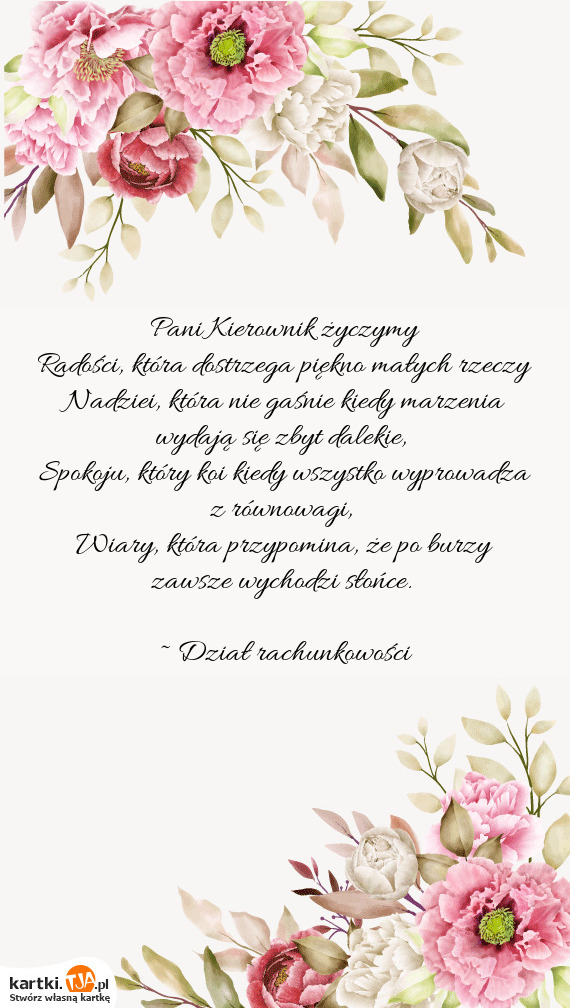 Pani Kierownik życzymy
Radości, która dostrzega piękno małych rzeczy
Nadziei, która nie gaśnie kiedy marzenia
wydają się zbyt dalekie,
Spokoju, który koi kiedy wszystko wyprowadza
z równowagi,
Wiary, która przypomina, że po burzy
zawsze wychodzi słońce.
~ Dział rachunkowości
kartki.TJA.pl
Stwórz własną kartkę